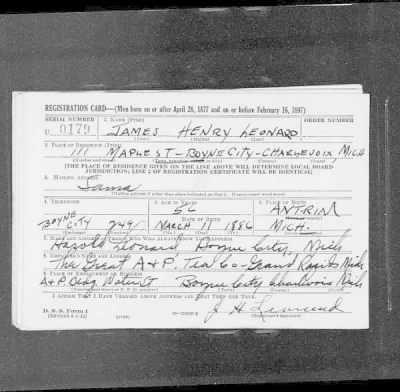 REGISTRATION CARD—(Men born on or after April 28, 1877 and on or before February 16, 1897)
SERIAL NUMBER 1. NAME (Print) ORDER NUMBER
U. 0179 JAMES HENRY LEONARD
(First) (Middle) (Last)
2. PLACE OF RESIDENCE (Print)
111 MAPLE ST-BOYNE CITY-CHARLEVOIX MICH
(Number and street) (Town, township, village, or city) (County) (State)
[THE PLACE OF RESIDENCE GIVEN ON THE LINE ABOVE WILL DETERMINE LOCAL BOARD
JURISDICTION; LINE 2 OF REGISTRATION CERTIFICATE WILL BE IDENTICAL]
3. MAILING ADDRESS
Same
4. TELEPHONE 5. AGE IN YEARS 6. PLACE OF BIRTH
56 ANTRIM
BOYNE CITY 249 DATE OF BIRTH
MARCH 11 1886 MICH.
7. NAME AND ADDRESS OF PERSON WHO WILL ALWAYS KNOW YOUR ADDRESS
Harold Leonard Boyne City, Mich
8. EMPLOYER'S NAME AND ADDRESS
The Great A&P. Tea Co-Grand Rapids Mich
9. PLACE OF EMPLOYMENT OR BUSINESS
A+P Bldg Water St Boyne City Charlevoix Mich
I AFFIRM THAT I HAVE VERIFIED ABOVE ANSWERS AND THAT THEY ARE TRUE.
D. S. S. Form 1 J H Leonard
(Revised 4-1-42) (over)